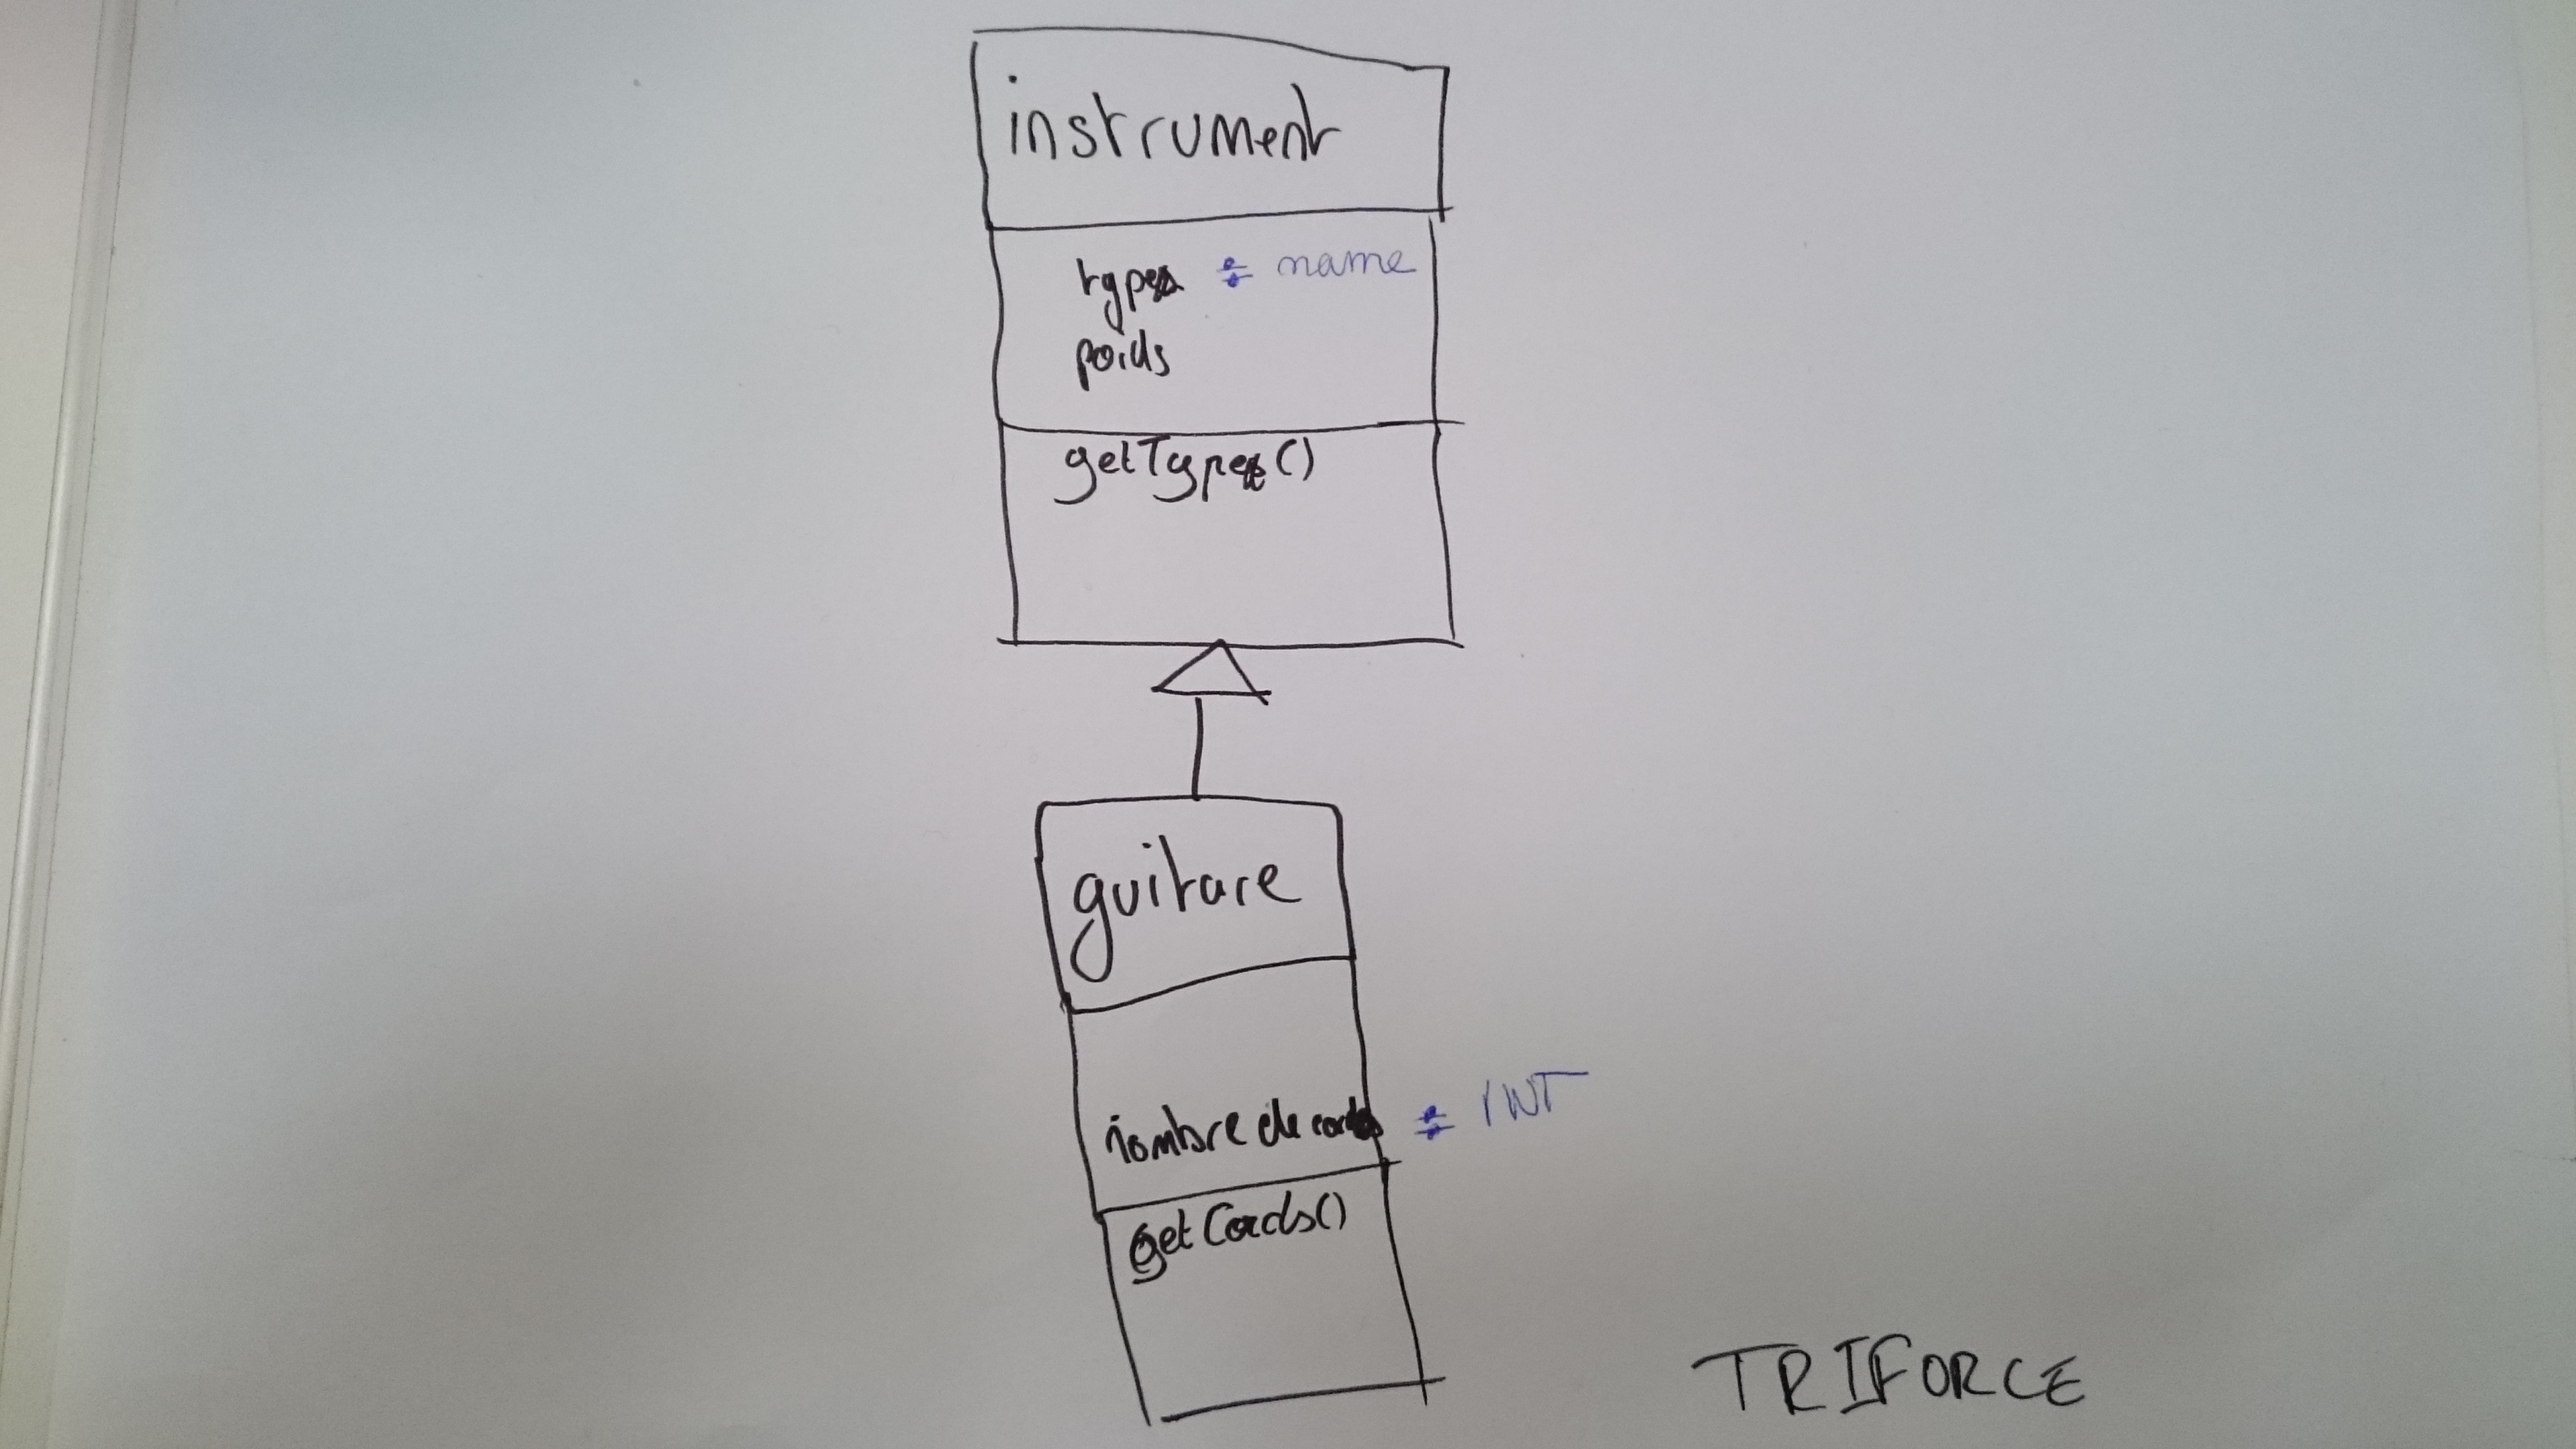 instrument
type : name
poids
getType()
guitare
nombre de : INT
getCords()
TRIFORCE